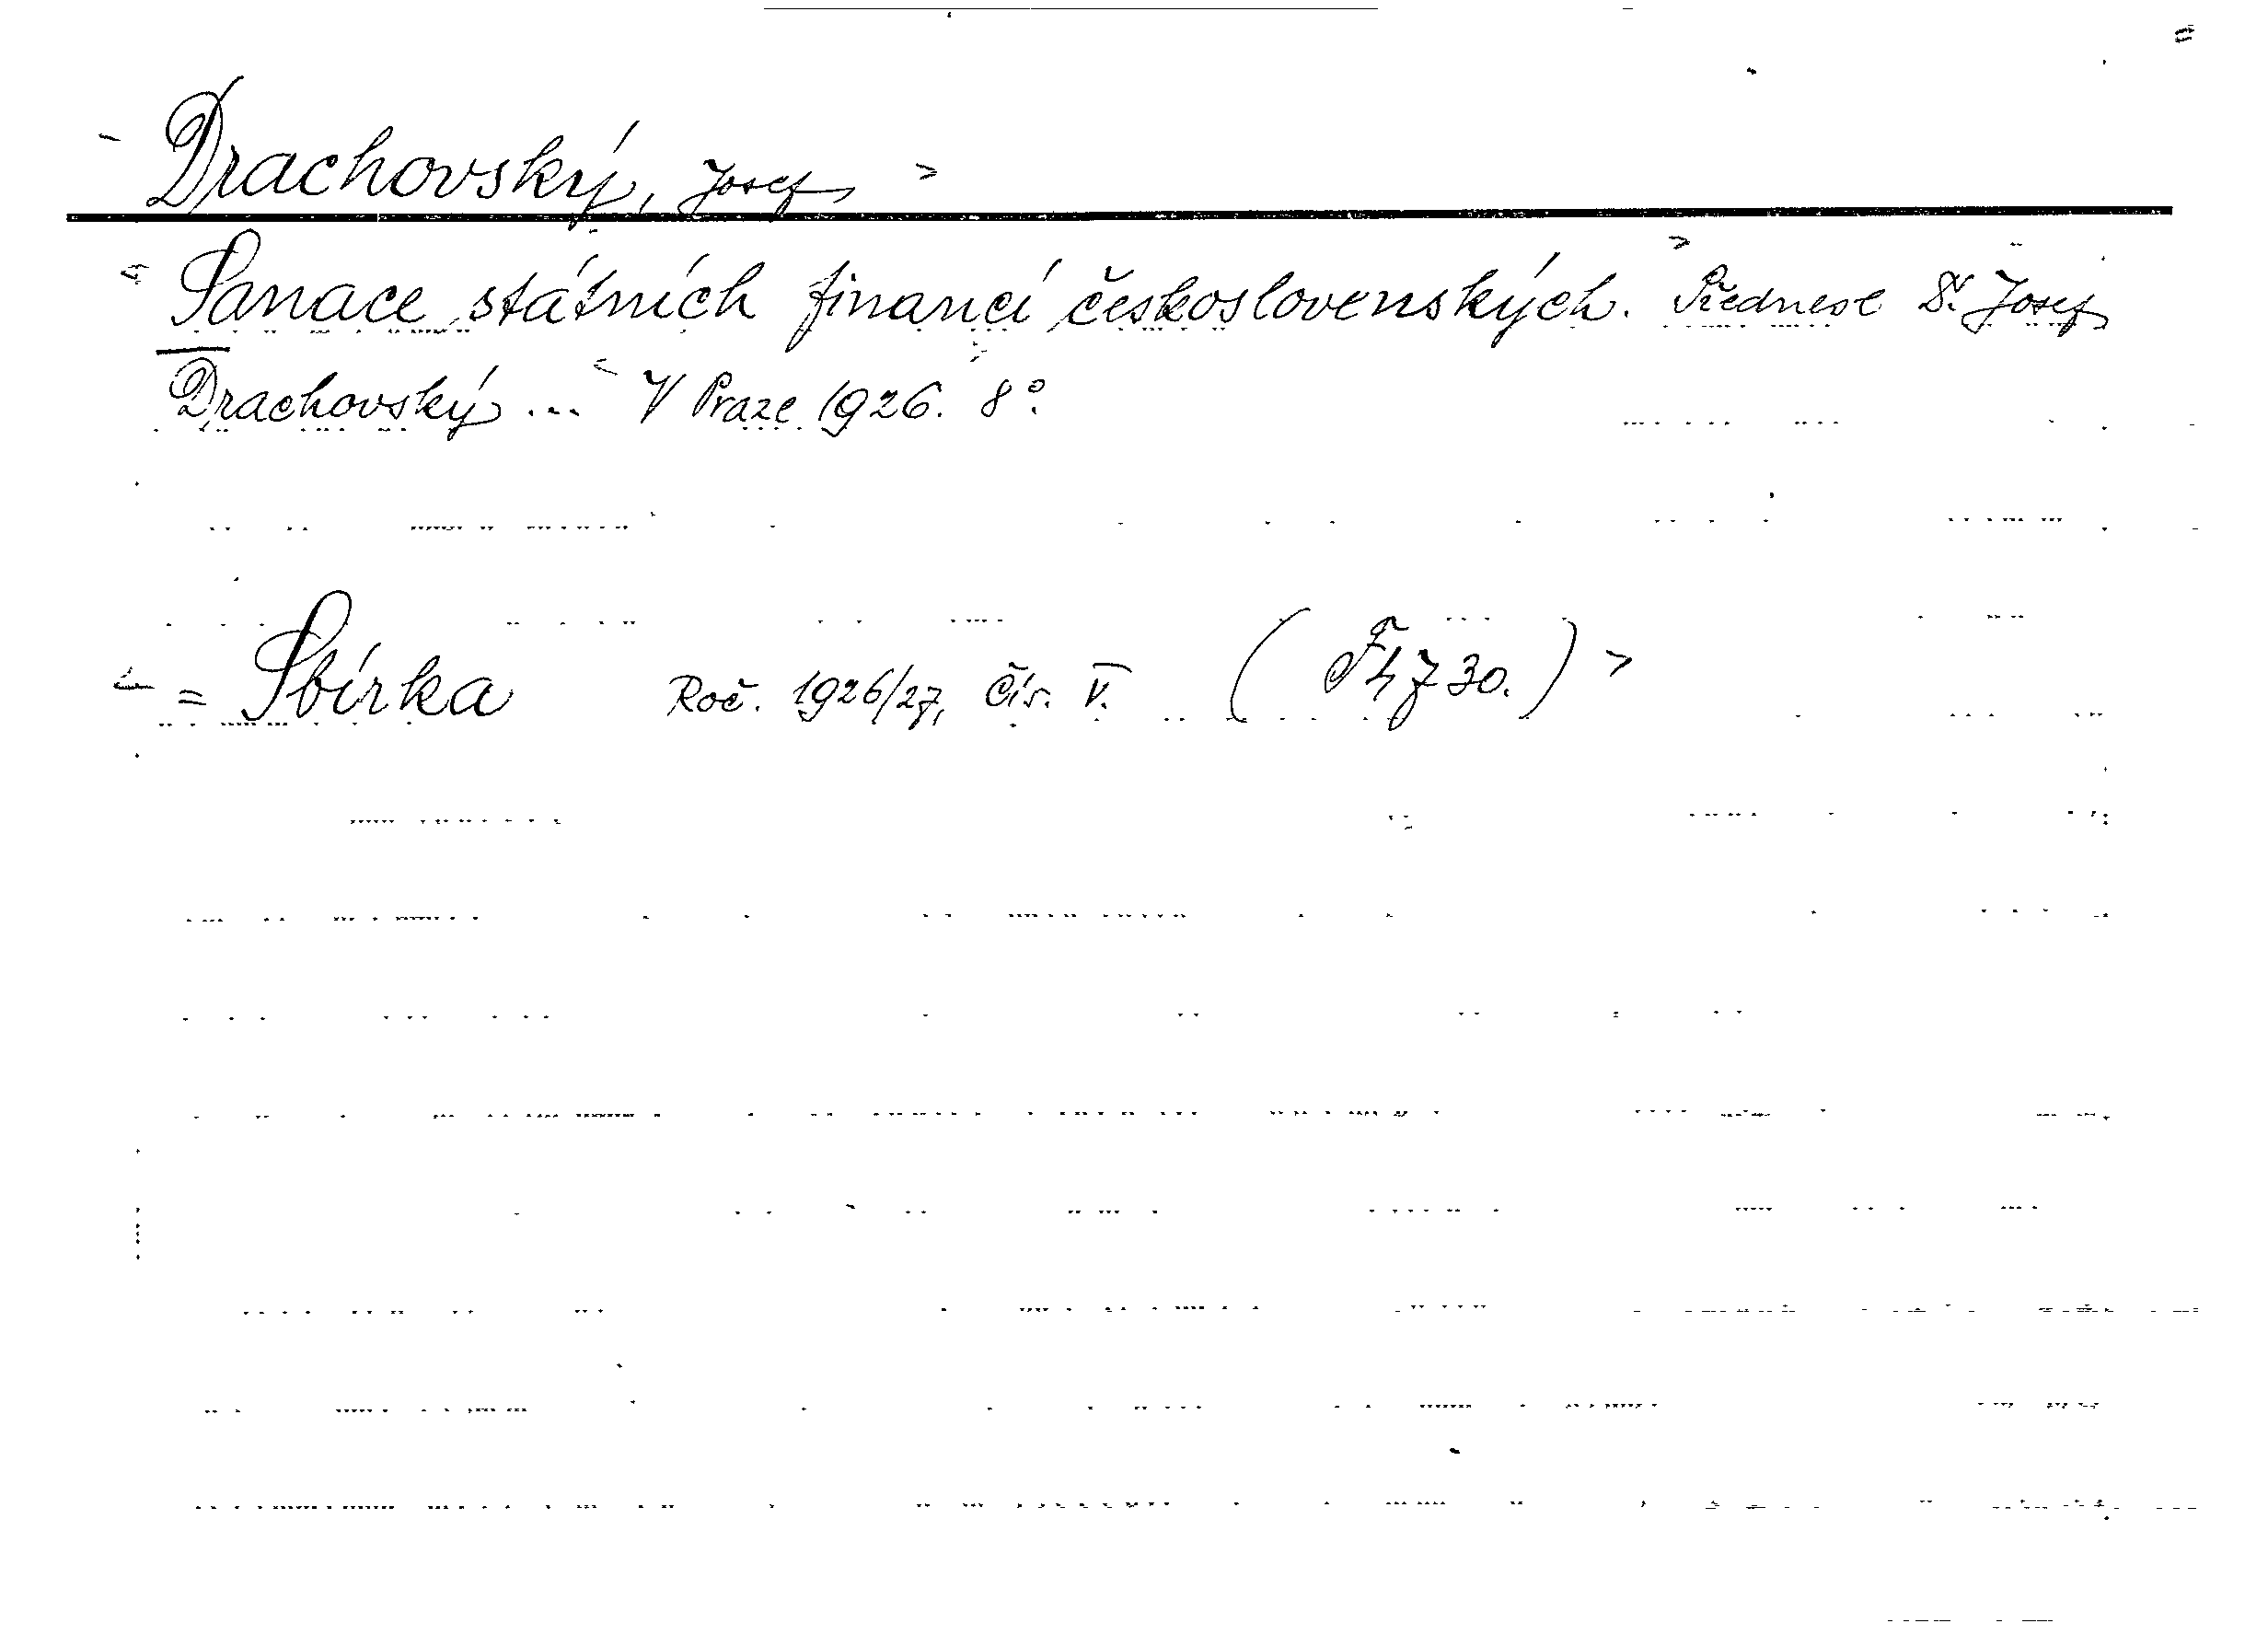 Drachovský, Josef
Sanace státních financí československých. Přednesl Dr. Josef
Drachovský ... V Praze 1926. 8°.
= Sbírka Roč. 1926/27, Čís. V. ( 30.)